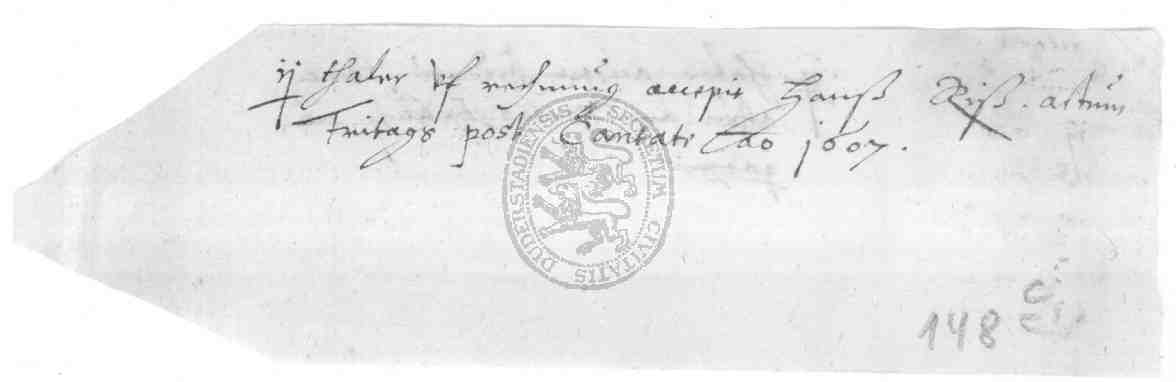 ij thaler vf rechnung accepit Hanß Riß. actum
Fritags post Cantate Ao 1607.
SECRETUM CIVITATIS DUDERSTADIENSIS
148